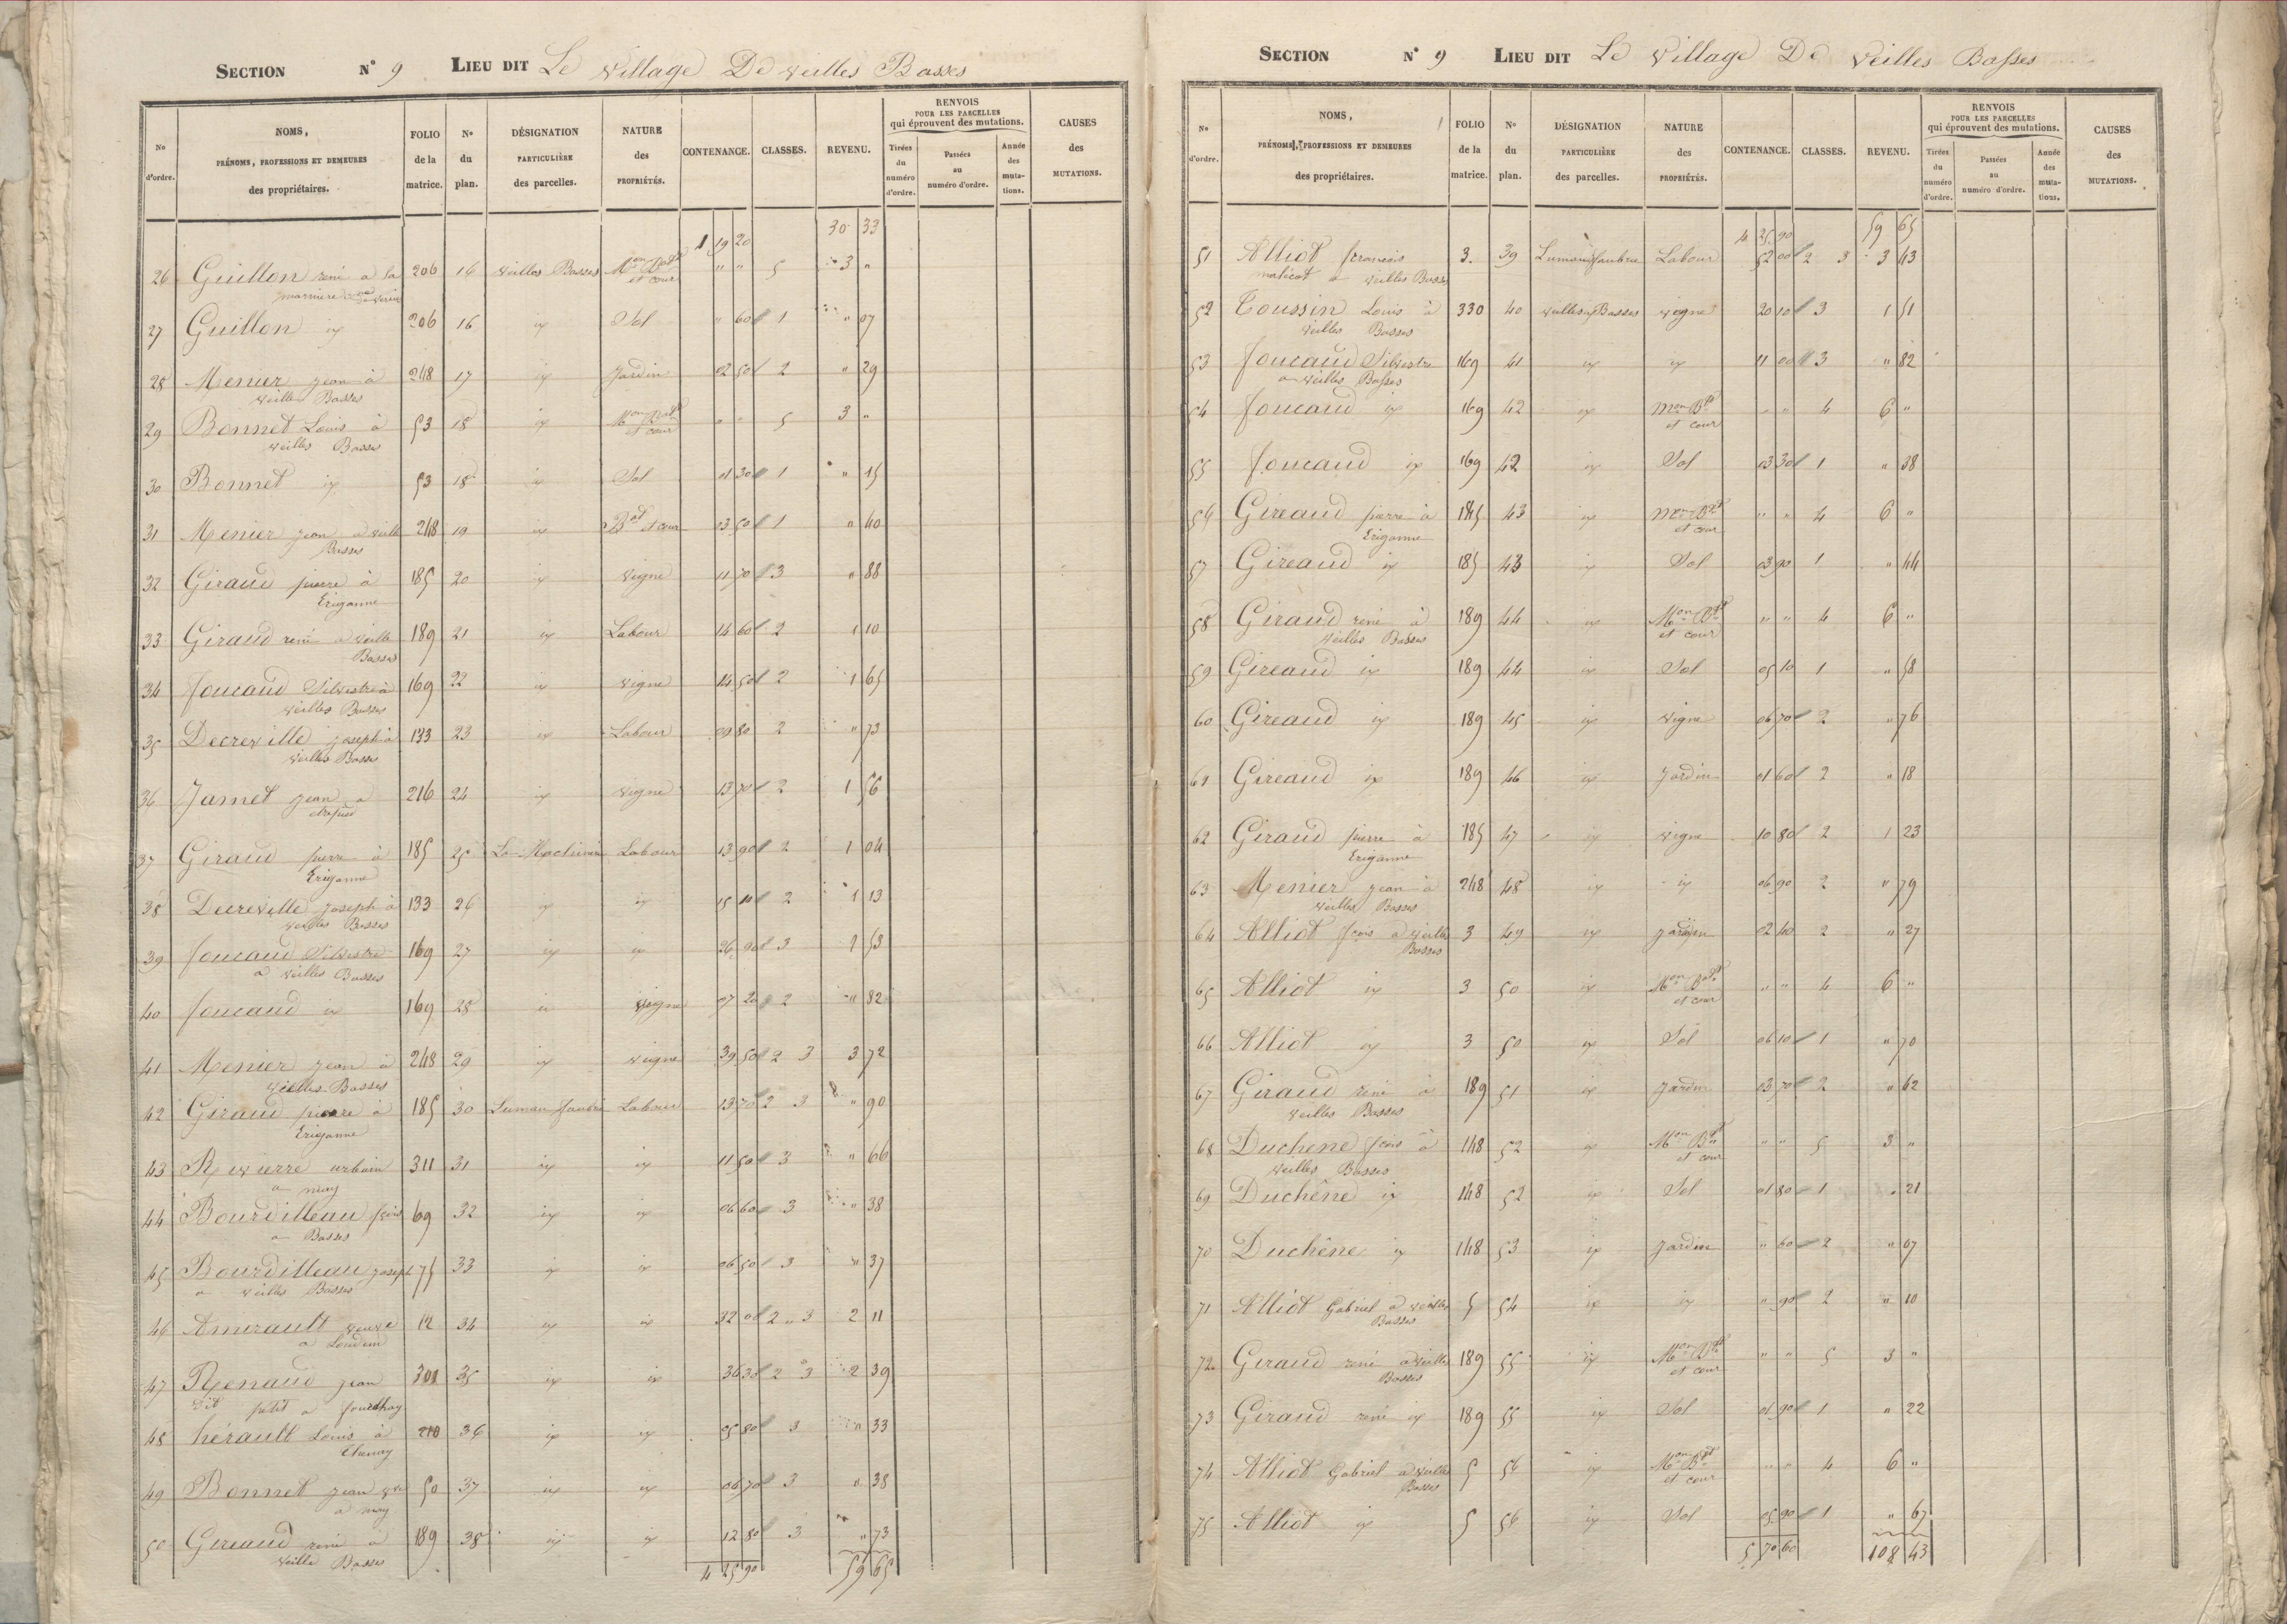 SECTION N° 9 LIEU DIT Le Village De Veilles Basses
No d'ordre. NOMS, PRÉNOMS, PROFESSIONS ET DEMEURES des propriétaires. FOLIO de la matrice. No du plan. DÉSIGNATION PARTICULIÈRE des parcelles. NATURE des PROPRIÉTÉS. CONTENANCE. CLASSES. REVENU. RENVOIS POUR LES PARCELLES qui éprouvent des mutations. Tirées du numéro d'ordre. Passées au numéro d'ordre. Année des mutations. CAUSES des MUTATIONS.
1 19 20 30 33
26 Guillon rené a la 206 16 Veilles Basses Mon Batt et cour " " 5 3 "
27 Guillon ix 206 16 ix Sol " 60 1 " 07
28 Menier jean à 248 17 ix Jardin 02 50 2 " 29
Veilles Basses
29 Bonnet Louis à 53 18 ix Mon Batt et cour " " 5 3 "
Veilles Basses
30 Bonnet ix 53 18 ix Sol 01 30 1 " 15
31 Menier jean a Veille 248 19 ix Bat et cour 03 50 1 " 40
Basses
32 Giraud pierre à 185 20 ix Vigne 11 70 3 " 88
Eriganne
33 Giraud rené a Veille 189 21 ix Labour 14 60 2 1 10
Basses
34 foucaud Silvestre à 169 22 ix Vigne 14 50 2 1 65
Veilles Basses
35 Decreville joseph à 133 23 ix Labour 09 80 2 " 73
Veilles Basses
36 Jamet jean a 216 24 ix Vigne 13 70 2 1 56
37 Giraud pierre à 185 25 Labour 13 90 2 1 04
Eriganne
38 Decreville joseph à 133 26 ix ix 15 10 2 1 13
Veilles Basses
39 foucaud Silvestre 169 27 ix ix 26 90 3 1 53
a Veilles Basses
40 foucaud ix 169 28 ix Vigne 07 20 2 " 82
41 Menier jean à 248 29 ix Vigne 39 50 2 3 3 72
Veilles Basses
42 Giraud pierre à 185 30 Labour 13 70 2 3 " 90
Eriganne
43 Rivierre urbain 311 31 ix ix 11 50 3 " 66
a may
44 Bourdilleau fçois 69 32 ix ix 06 60 3 " 38
a Basses
45 Bourdilleau joseph 75 33 ix ix 06 50 3 " 37
a Veilles Basses
46 Amirault veuve 12 34 ix ix 32 00 2 " 3 2 11
a Loudun
47 Renaud jean 301 35 ix ix 36 30 2 3 2 39
dit petit a fourthay
48 hérault Louis à 210 36 ix ix 05 80 3 " 33
49 Bonnet jean 50 37 ix ix 06 70 3 " 38
a may
50 Gireaud rené à 189 38 ix ix 12 80 3 " 73
Veille Basses
4 25 90 59 65
SECTION N° 9 LIEU DIT Le Village De Veilles Basses
No d'ordre. NOMS, PRÉNOMS, PROFESSIONS ET DEMEURES des propriétaires. FOLIO de la matrice. No du plan. DÉSIGNATION PARTICULIÈRE des parcelles. NATURE des PROPRIÉTÉS. CONTENANCE. CLASSES. REVENU. RENVOIS POUR LES PARCELLES qui éprouvent des mutations. Tirées du numéro d'ordre. Passées au numéro d'ordre. Année des mutations. CAUSES des MUTATIONS.
4 25 90 59 65
51 Alliot francois 3 39 Labour 52 00 2 3 3 43
malicot a Veilles Basses
52 Toussin Louis à 330 40 Veilles Basses Vigne 20 10 3 1 51
Veilles Basses
53 foucaud Silvestre 169 41 ix ix 11 00 3 " 82
a Veilles Basses
54 foucaud ix 169 42 ix Mon Bt et cour " " 4 6 "
55 foucaud ix 169 42 ix Sol 03 30 1 " 38
56 Gireaud pierre à 185 43 ix Mon Bt et cour " " 4 6 "
Eriganne
57 Gireaud ix 185 43 ix Sol 03 90 1 " 44
58 Giraud rené à 189 44 ix Mon Bt et cour " " 4 6 "
Veilles Basses
59 Gireaud ix 189 44 ix Sol 05 10 1 " 58
60 Gireaud ix 189 45 ix Vigne 06 70 2 " 76
61 Gireaud ix 189 46 ix Jardin 01 60 2 " 18
62 Giraud pierre à 185 47 ix Vigne 10 80 2 1 23
Eriganne
63 Menier jean à 248 48 ix ix 06 90 2 " 79
Veilles Basses
64 Alliot fçois a Veilles 3 49 ix Jardin 02 40 2 " 27
Basses
65 Alliot ix 3 50 ix Mon Bat et cour " " 4 6 "
66 Alliot ix 3 50 ix Sol 06 10 1 " 70
67 Giraud rené à 189 51 ix Jardin 13 70 2 " 62
Veilles Basses
68 Duchene fçois à 148 52 ix Mon Bt et cour " " 5 3 "
Veilles Basses
69 Duchêne ix 148 52 ix Sol 01 80 1 " 21
70 Duchêne ix 148 53 ix Jardin " 60 2 " 07
71 Alliot Gabriel a Veilles 5 54 ix ix " 90 2 " 10
Basses
72 Geraud rené a Veilles 189 55 ix Mon Bt et cour " " 5 3 "
Basses
73 Giraud rené ix 189 55 ix Sol 01 90 1 " 22
74 Alliot Gabriel a Veilles 5 56 ix Mon Bt et cour " " 4 6 "
Basses
75 Alliot ix 5 56 ix Sol 05 90 1 " 67
5 70 60 108 43